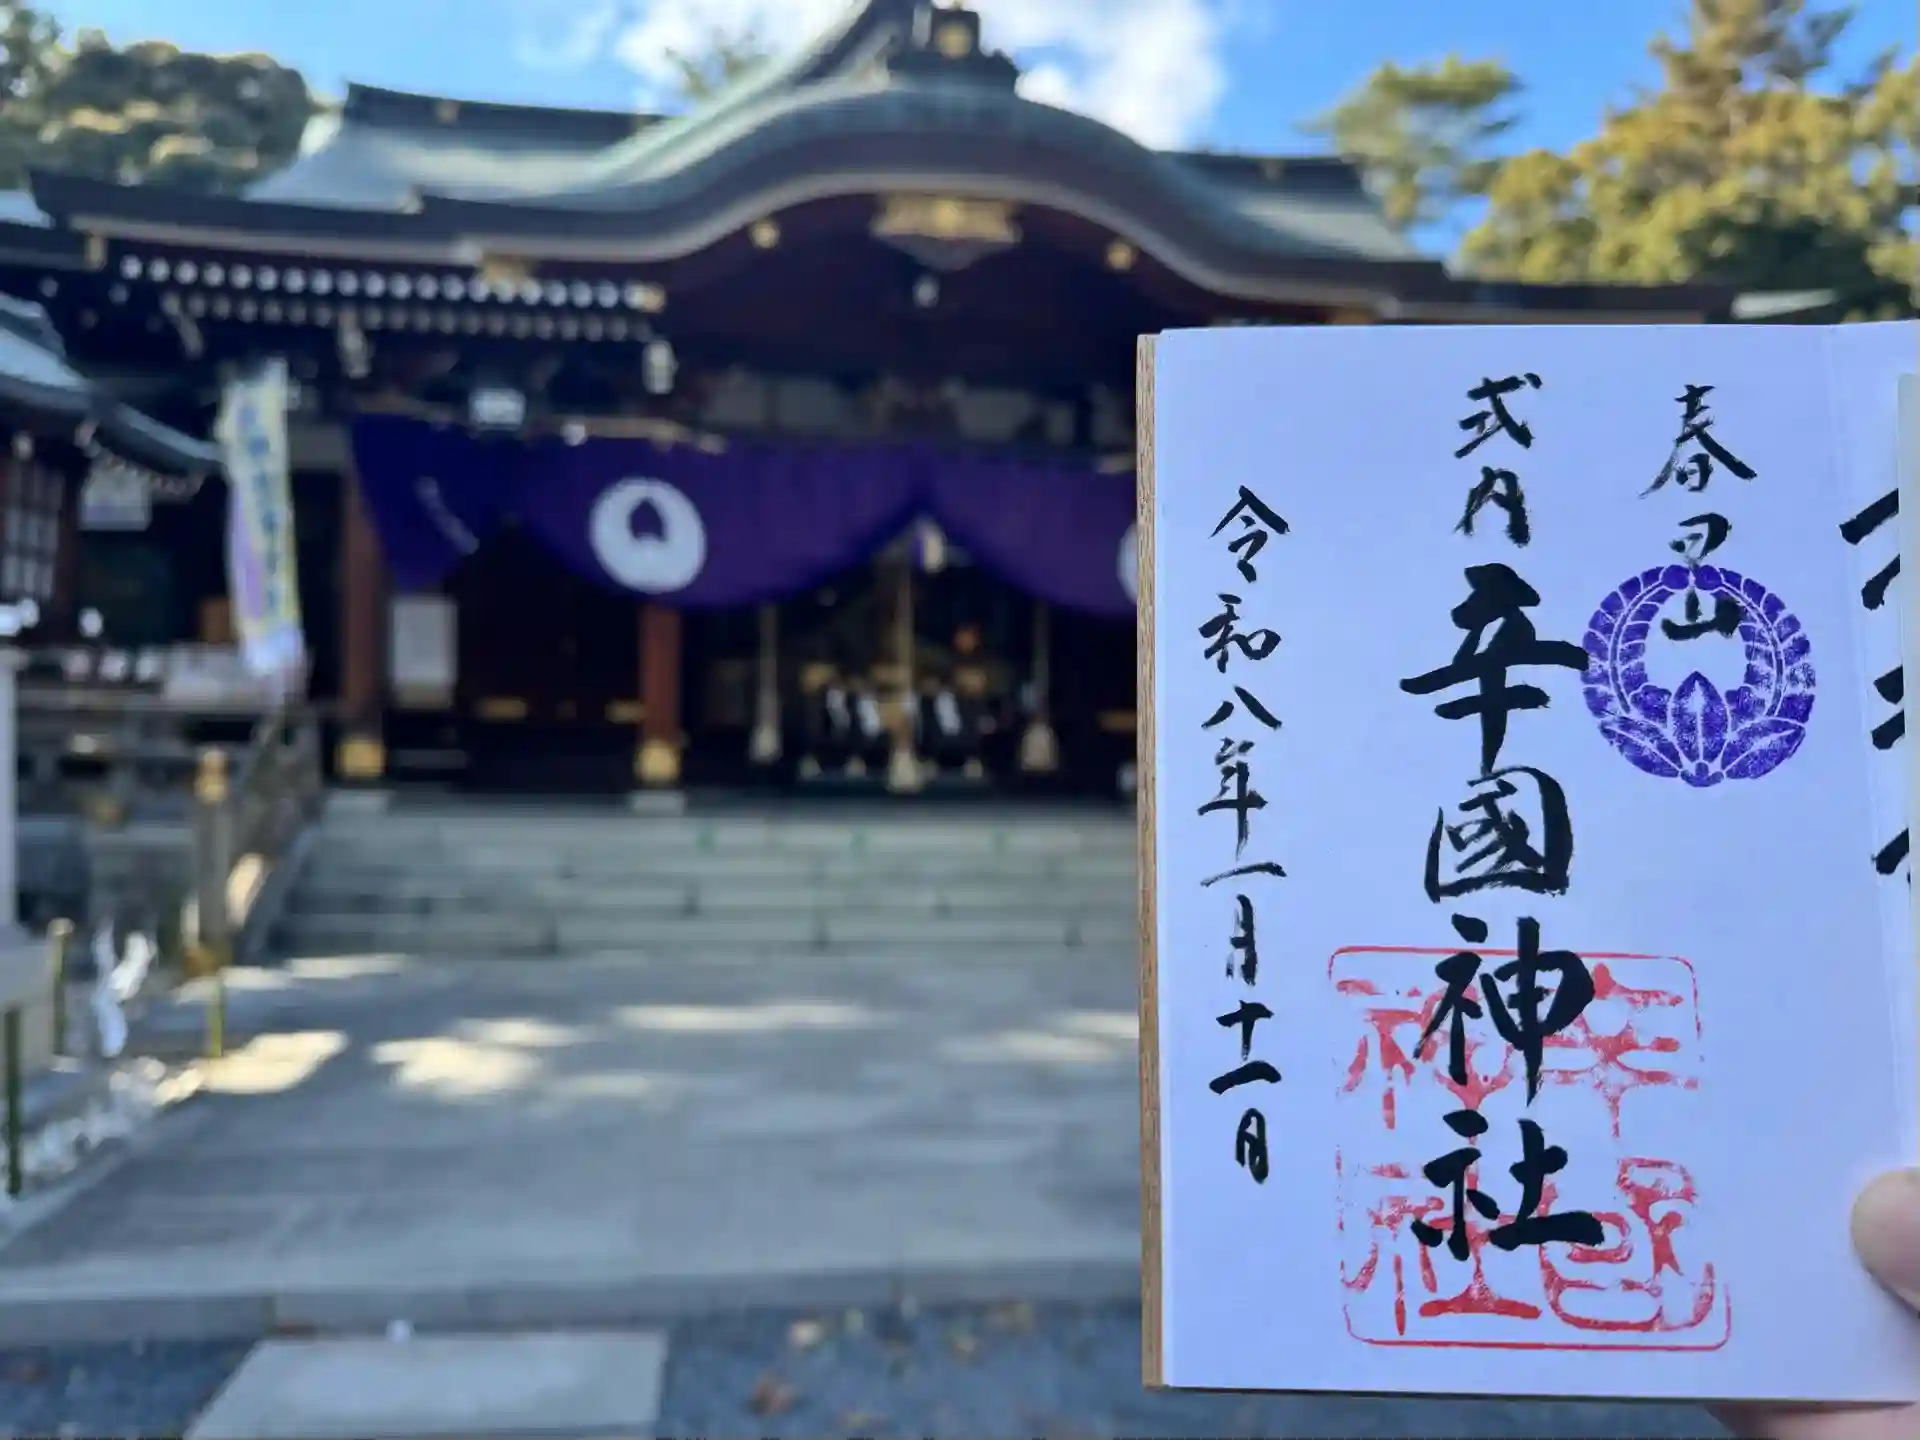 春日山
式内 辛國神社
令和八年一月十一日
辛国神社